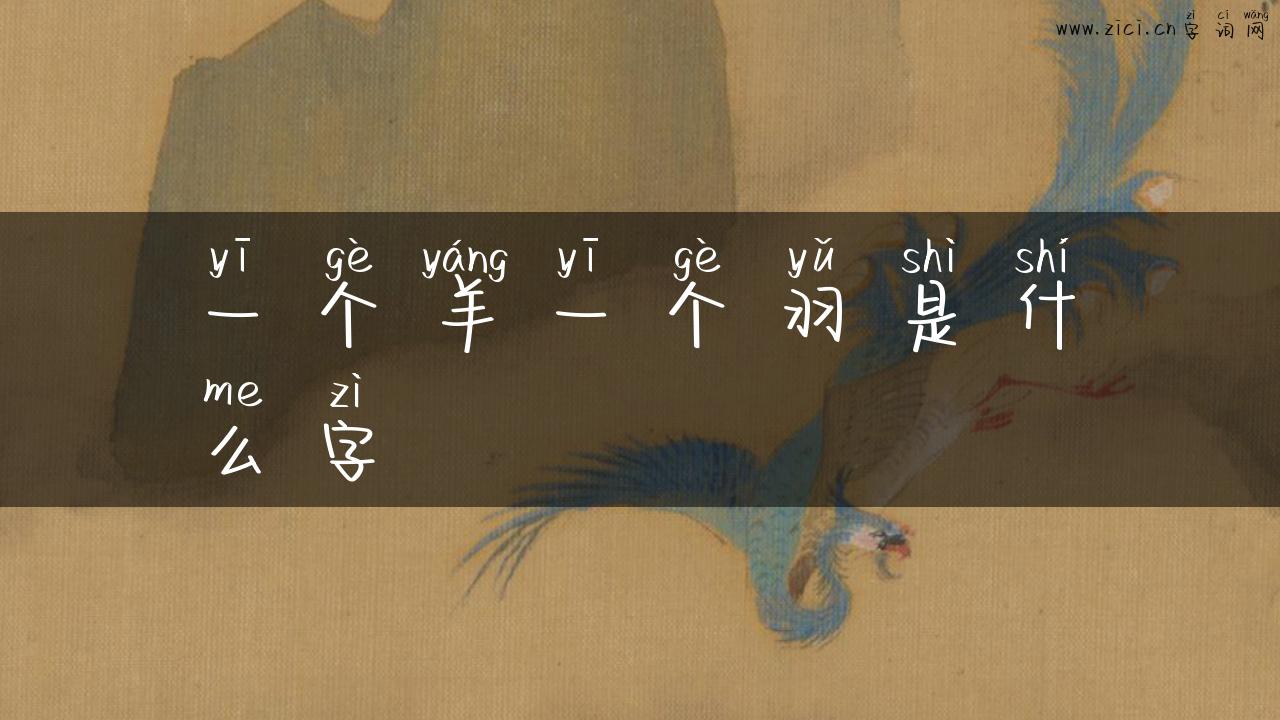 zì cí wǎng
www.zici.cn 字 词 网
yī gè yáng yī gè yǔ shì shí
一 个 羊 一 个 羽 是 什
me zì
么 字